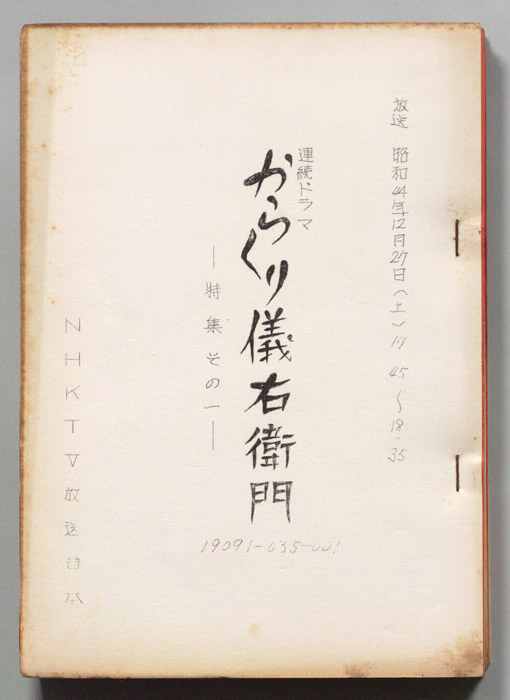 放送 昭和44年12月27日(土) 17.45〜18.35
連続ドラマ
からくり儀右衛門
―特集その一―
NHKTV放送台本
19091-035-001